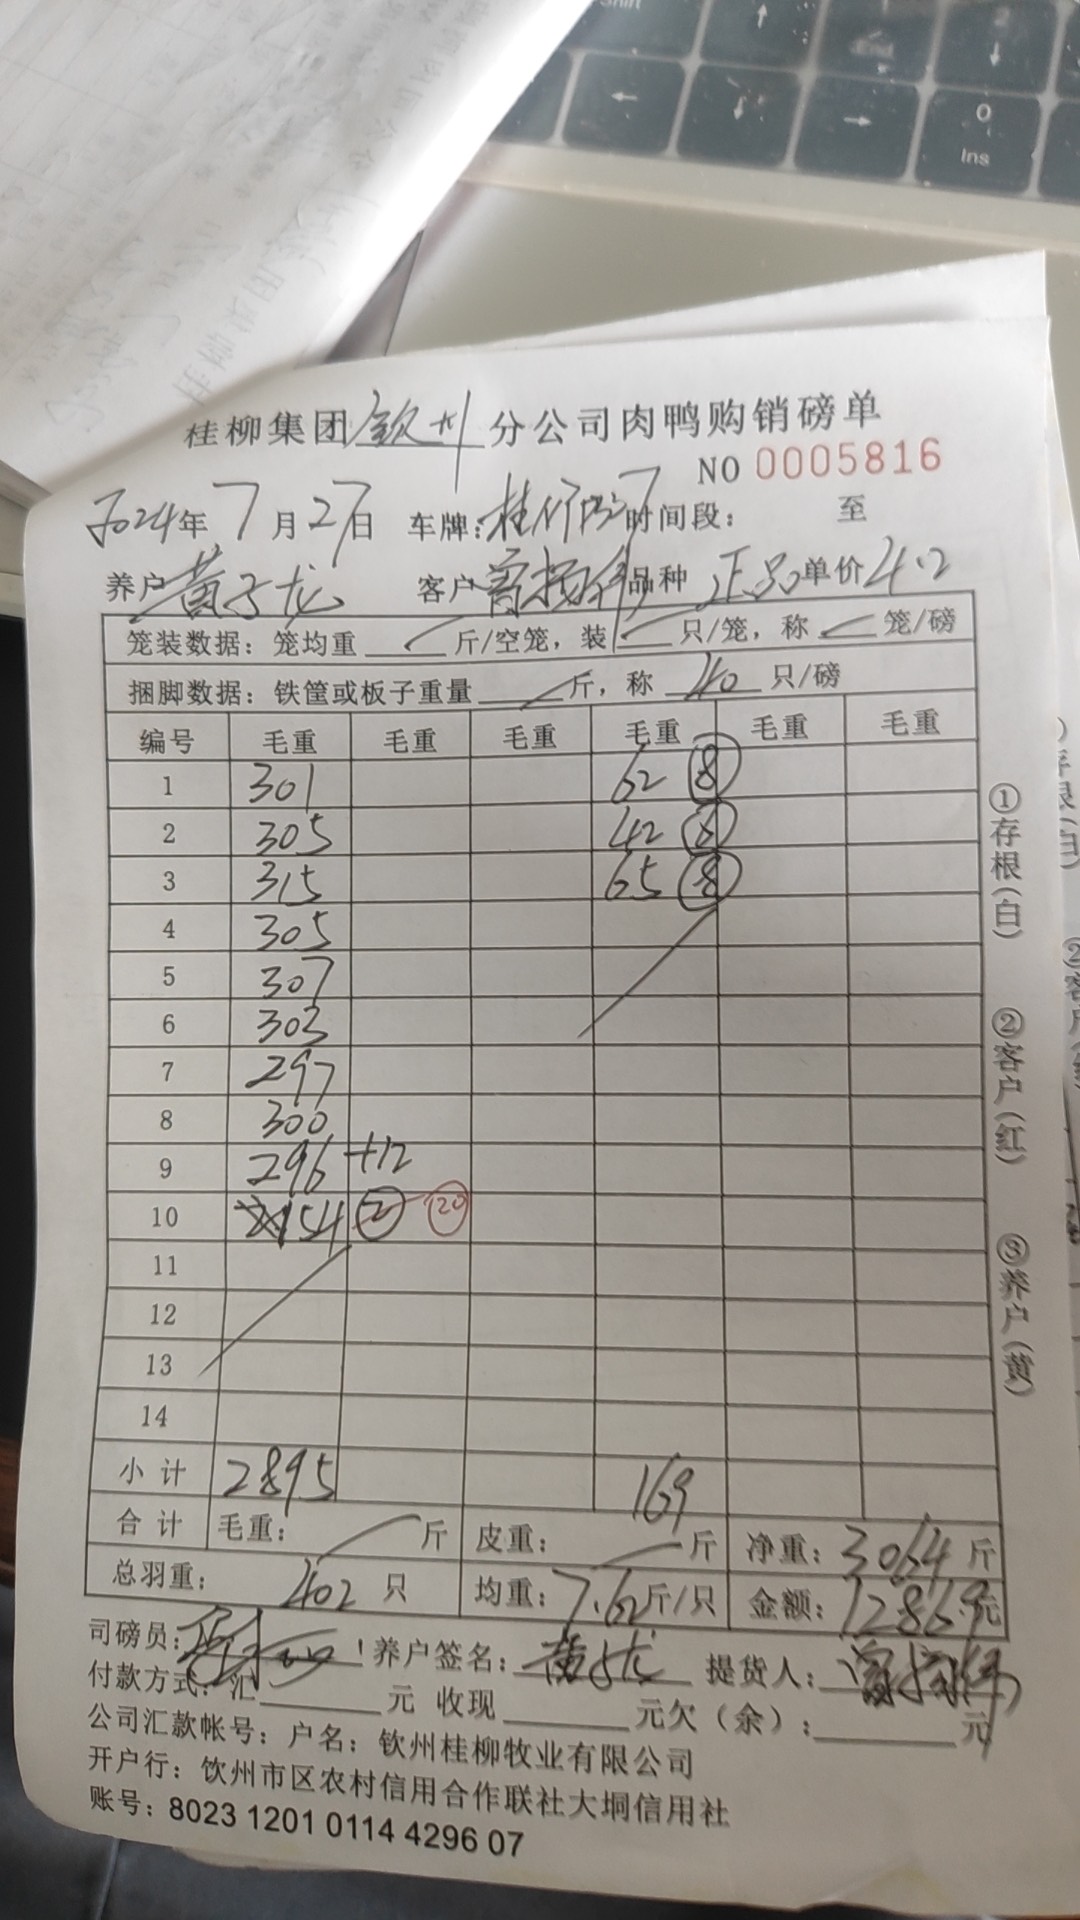 Shift
End
0
Ins
桂柳集团钦州分公司肉鸭购销磅单
NO 0005816
2024年7月27日 车牌: 时间段： 至
养户黄子龙 客户 品种 正品 单价4.2
笼装数据：笼均重 斤/空笼，装 只/笼，称 笼/磅
捆脚数据：铁筐或板子重量 斤，称 40 只/磅
编号 毛重 毛重 毛重 毛重 毛重 毛重
1 301 62 8
2 305 42 8
3 315 65 8
4 305
5 307
6 303
7 297
8 300
9 296 +12
10 154 2 20
11
12
13
14
小计 2895 169
合计 毛重： 斤 皮重： 斤 净重：3064 斤
总羽重： 402 只 均重：7.62斤/只 金额：12869元
司磅员： 养户签名：黄子龙 提货人：
付款方式：汇 元 收现 元欠（余）： 元
公司汇款帐号：户名：钦州桂柳牧业有限公司
开户行：钦州市区农村信用合作联社大垌信用社
账号：8023 1201 0114 4296 07
①存根（白） ②客户（红） ③养户（黄）